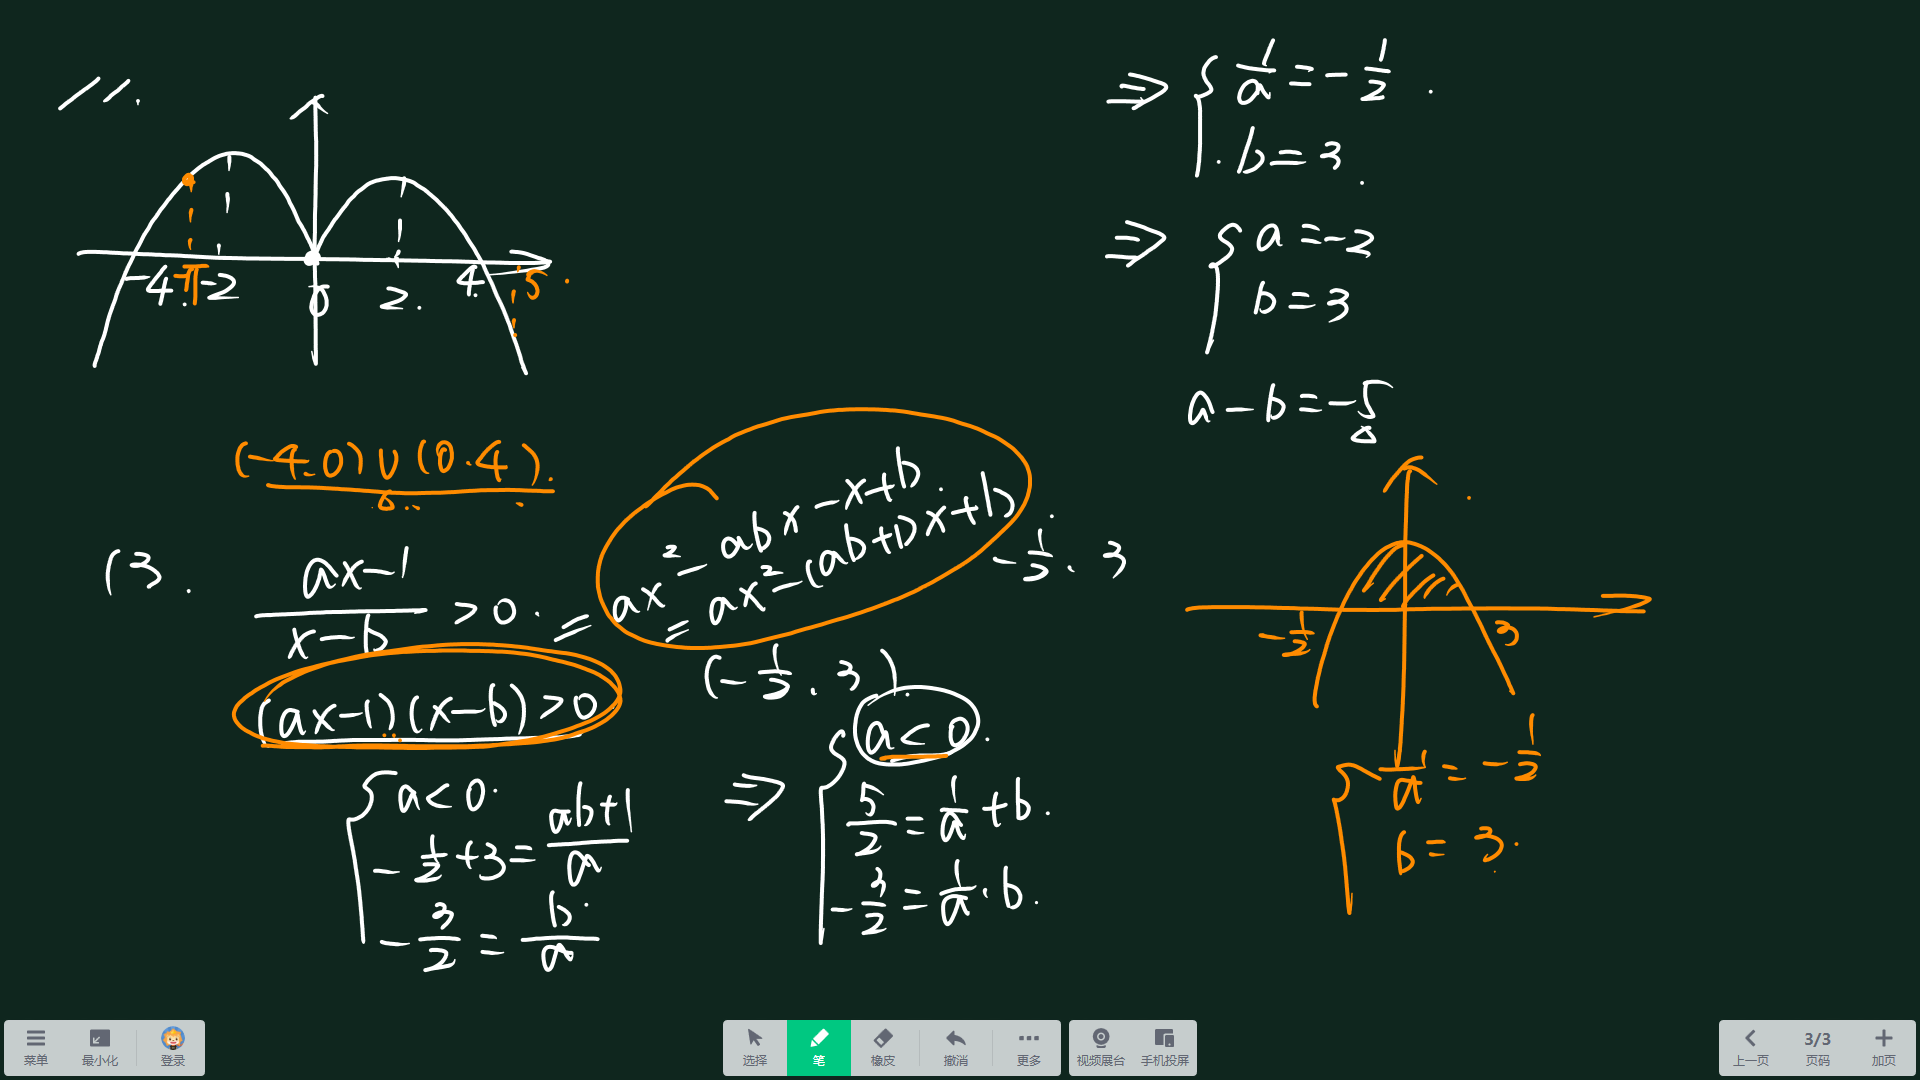 11.
-4. -π -2 0 2. 4. 5.
(-4.0)∪(0.4).
13.
ax-1/x-b >0.
= ax²-abx-x+b.
= ax²-(ab+1)x+b
-1/2. 3
(ax-1)(x-b)>0
(-1/2. 3).
{ a<0.
-1/2+3=ab+1/a
-3/2=b/a
⇒ { a<0.
5/2=1/a+b.
-3/2=1/a·b.
⇒ { 1/a=-1/2.
b=3.
⇒ { a=-2
b=3
a-b=-5
-1/2 3
{ 1/a=-1/2
b=3.
菜单 最小化 登录
选择 笔 橡皮 撤消 更多
视频展台 手机投屏
3/3
上一页 页码 加页